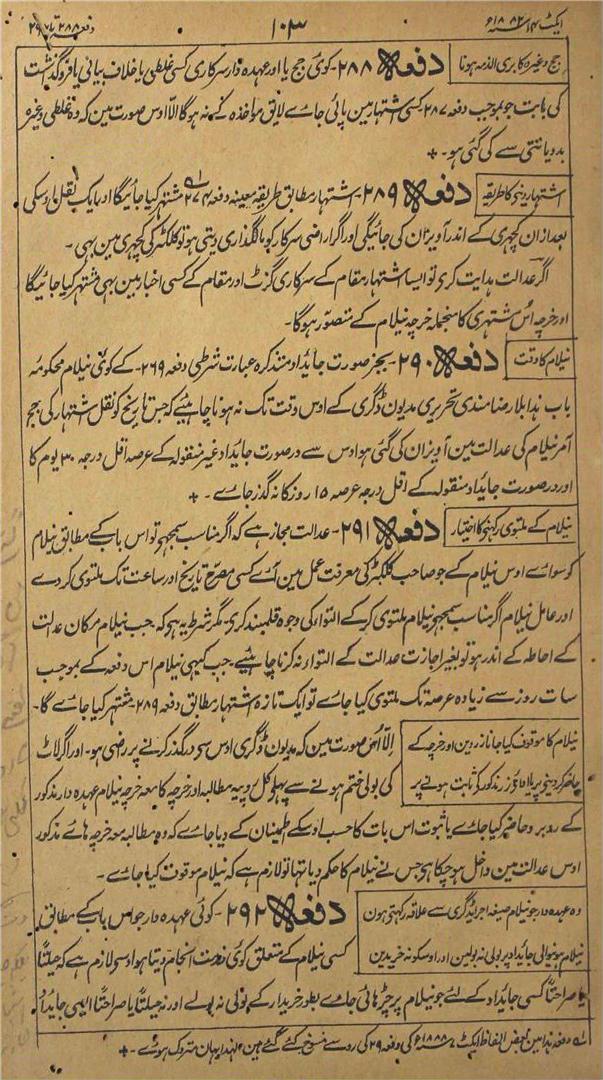 ایکٹ ۱۴ سنہ ۱۸۸۲ء ۱۰۳ دفعہ ۲۸۸ تا ۲۹۲
جج وغیرہ کا بری الذمہ ہونا دفعہ ۲۸۸- کوئی جج یا اور عہدہ دار سرکاری کسی غلطی یا خلاف بیانی یا فروگذاشت
کی بابت جو بموجب دفعہ ۲۸۷ کسی اشتہار مین پائی جاے لایق مواخذہ کے نہ ہوگا الا اوس صورت مین کہ وہ غلطی وغیرہ
بد دیانتی سے کی گئی ہو-+
اشتہار دینی کا طریقہ دفعہ ۲۸۹- اشتہار مطابق طریقہ معینہ دفعہ ۲۷۴ مشتہر کیا جائیگا اور ایک نقل اوسکی
بعد ازان کچہری کے اندر آویزان کی جائیگی اور اگر اراضی سرکار کو مالگذاری دیتی ہو تو کلکٹر کی کچہری مین بہی-
اگر عدالت ہدایت کری تو ایسا اشتہار مقام کے سرکاری گزٹ اور مقام کے کسی اخبار مین بہی مشتہر کیا جائیگا
اور خرچہ اس مشتہری کا منجملہ خرچہ نیلام کے متصور ہوگا-
نیلام کا وقت دفعہ ۲۹۰- بجز صورت جائداد متذکرہ عبارت شرطی دفعہ ۲۶۹- کے کوئی نیلام محکومہ
باب ہذا بلا رضامندی تحریری مدیون ڈگری کے اوس وقت تک نہ ہونا چاہیئے کہ جس تاریخ کو نقل اشتہار کی جج
آمر نیلام کی عدالت مین آویزان کی گئی ہو اوس سے درصورت جائداد غیر منقولہ کے عرصہ اقل درجہ ۳۰ یوم کا
اور درصورت جائداد منقولہ کے اقل درجہ عرصہ ۱۵ روز کا نہ گذر جاے-+
نیلام کے ملتوی رکہنی کا اختیار دفعہ ۲۹۱- عدالت مجاز ہے کہ اگر مناسب سمجہے تو اس باب کے مطابق نیلام
کو سواے اوس نیلام کے جو صاحب کلکٹر کی معرفت عمل مین آے کسی مصرح تاریخ اور ساعت تک ملتوی کر دے
اور عامل نیلام اگر مناسب سمجہے نیلام ملتوی کرکے التواء کی وجوہ قلمبند کری مگر شرط یہ ہی کہ جب نیلام مکان عدالت
کے احاطہ کے اندر ہو تو بغیر اجازت عدالت کے التواء نہ کرنا چاہیئے جب کبہی نیلام اس دفعہ کے بموجب
سات روز سے زیادہ عرصہ تک ملتوی کیا جاے تو ایک تازہ اشتہار مطابق دفعہ ۲۸۹ مشتہر کیا جاے گا-
نیلام کا موقوف کیا جانا زر دین اور خرچہ کے الا اس صورت مین کہ مدیون ڈگری اوس سی درگذر کرنے پر راضی ہو- اور اگر لاٹ
حاضر کر دینی پر یا ادائی زر مذکور کی ثابت ہونے پر کی بولی ختم ہونے سے پہلی کل روپیہ مطالبہ اور خرچہ کا معہ خرچہ نیلام عہدہ دار مذکور
کے روبرو حاضر کیا جاے یا ثبوت اس بات کا حسب اوسکے اطمینان کے دیا جاے کہ وہ مطالبہ معہ خرچہ ہاے مذکور
اوس عدالت مین داخل ہو چکا ہی جس نے نیلام کا حکم دیا تہا تو لازم ہے کہ نیلام موقوف کیا جاے-
وہ عہدہ دار جو نیلام صیغہ اجرا ڈگری سے علاقہ رکہتی ہون دفعہ ۲۹۲- کوئی عہدہ دار جو اس باب کے مطابق
نیلام ہونیوالی جائداد پر بولی نہ بولین اور اوسکو نہ خریدین کسی نیلام کے متعلق کوئی خدمت انجام دیتا ہو اوسی لازم ہے کہ حیلتاً
یا صراحتاً کسی جائداد کے لئے جو نیلام پر چڑہائی جاے بطور خریدار کے بولی نہ بولے اور نہ حیلتاً یا صراحتاً ایسی جائداد
لے دفعہ ہذا مین بعض الفاظ ایکٹ ۷ سنہ ۱۸۸۸ء کی دفعہ ۲۹ کی رو سے منسوخ کئے گئے ہین لہذا یہان متروک ہوئے-+